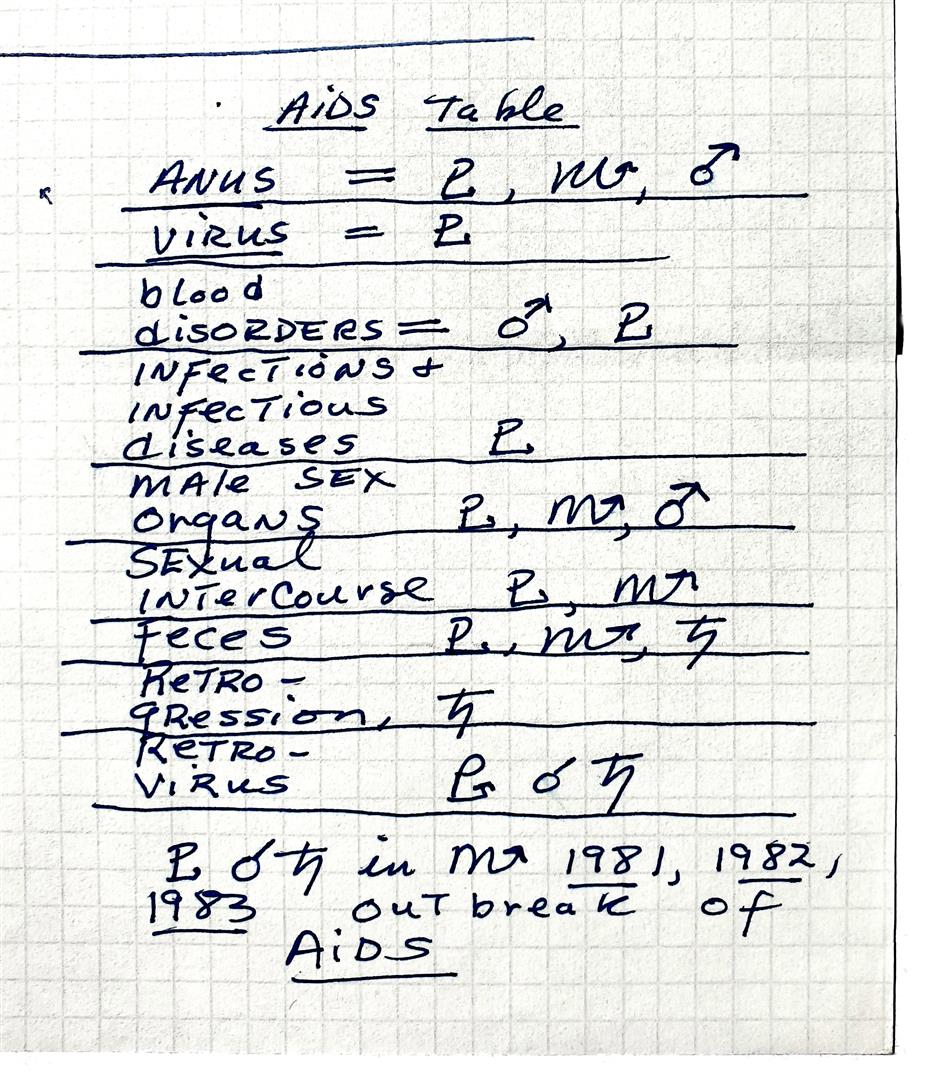 AiDS Table
ANUS = ♇, ♏, ♂
ViRUS = ♇
blood
disORDERS = ♂, ♇
INFecTiONS &
INfecTious
diseases ♇
MAle SEX
OrgaNS ♇, ♏, ♂
SEXual
INTerCourse ♇, ♏
Feces ♇, ♏, ♄
ReTRO -
gRession, ♄
ReTRO -
ViRUS ♇ ☌ ♄
♇ ☌ ♄ in ♏ 1981, 1982,
1983 ouT break of
AiDS